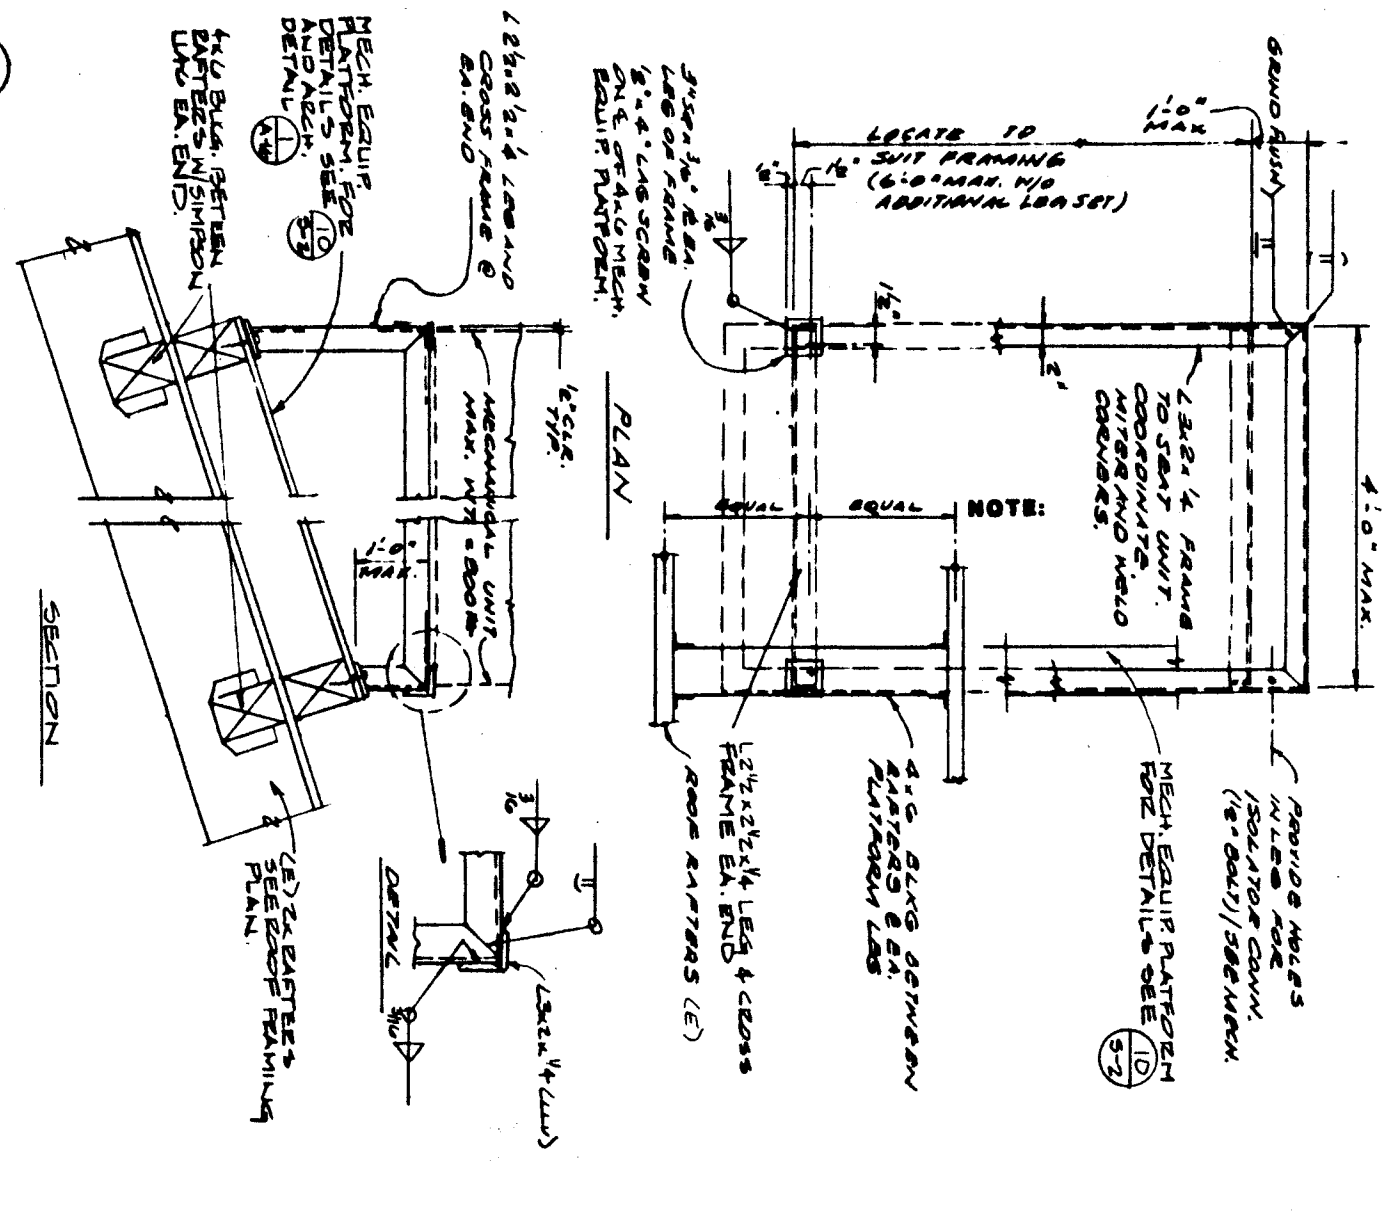 GRIND FLUSH
1'-0"
MAX
LOCATE TO
SUIT FRAMING
(6'-0" MAX. W/O
ADDITIONAL LEG SET)
1½"
3/16
3" SQ x 3/16" PL EA.
LEG OF FRAME
½"ø x 4" LAG SCREW
ON ℄ OF 4x6 MECH.
EQUIP. PLATFORM.
1½"
2"
L3x2x¼ FRAME
TO SEAT UNIT.
COORDINATE
MITER AND WELD
CORNERS.
4'-0" MAX.
EQUAL
EQUAL
NOTE:
PLAN
PROVIDE HOLES
IN LEG FOR
ISOLATOR CONN.
(½"ø BOLT)/SEE MECH.
MECH. EQUIP. PLATFORM
FOR DETAILS SEE
10
S-2
4x6 BLKG BETWEEN
RAFTERS @ EA.
PLATFORM LEG
L2½x2½x¼ LEG & CROSS
FRAME EA. END
ROOF RAFTERS (E)
L2½x2½x¼ LEG AND
CROSS FRAME @
EA. END
MECH. EQUIP.
PLATFORM. FOR
DETAILS SEE
AND ARCH.
DETAIL
10
S-2
1
4x6 BLKG. BETWEEN
RAFTERS W/SIMPSON
EA. END.
½" CLR.
TYP.
MECHANICAL UNIT
MAX. WT. = 800#
1'-0"
MAX.
SECTION
3/16
DETAIL
3/16
L3x2x¼ (LLV)
(E) 2x RAFTERS
SEE ROOF FRAMING
PLAN.